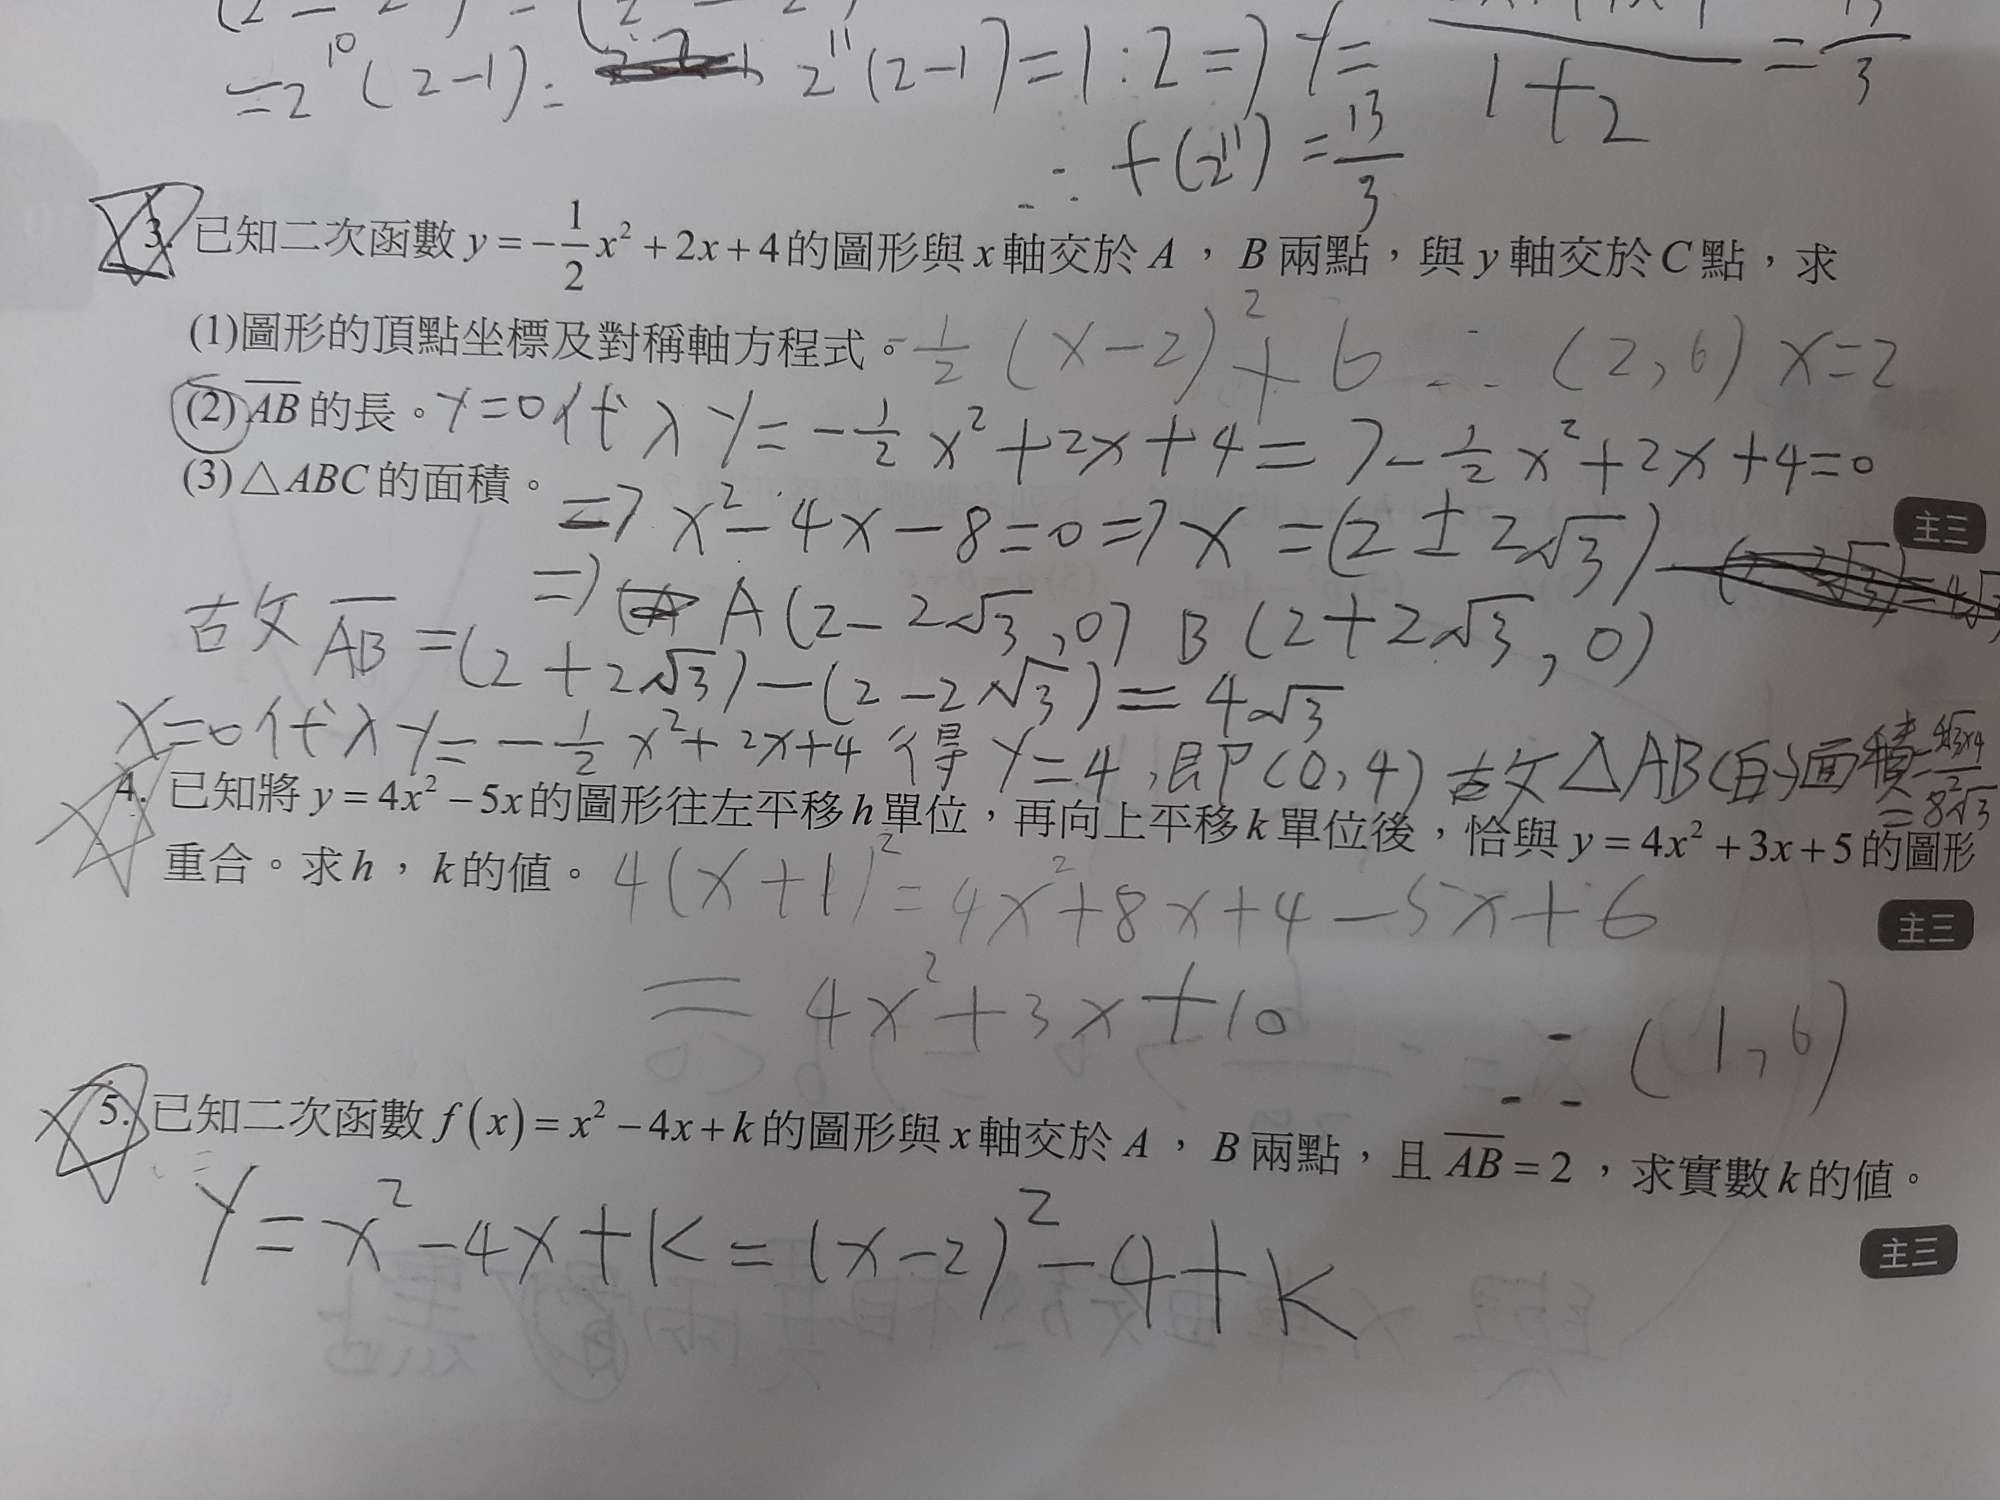 =2^10(2-1): 2^11(2-1)=1:2 => y= /(1+2) = 13/3
∴ f(2^11)=13/3
3. 已知二次函數 y=-1/2x²+2x+4 的圖形與 x 軸交於 A,B 兩點,與 y 軸交於 C 點,求
(1)圖形的頂點坐標及對稱軸方程式。 -1/2(x-2)²+6 ∴(2,6) x=2
(2) AB 的長。 y=0代入 y=-1/2x²+2x+4 => -1/2x²+2x+4=0
(3) △ABC 的面積。
=> x²-4x-8=0 => x=(2±2√3)
主三
=> A(2-2√3,0) B(2+2√3,0)
故 AB=(2+2√3)-(2-2√3)=4√3
x=0代入 y=-1/2x²+2x+4 得 y=4,即(0,4) 故△ABC的面積=4√3×4/2
=8√3
4. 已知將 y=4x²-5x 的圖形往左平移 h 單位,再向上平移 k 單位後,恰與 y=4x²+3x+5 的圖形
重合。求 h,k 的值。 4(x+1)²=4x²+8x+4-5x+6
主三
=4x²+3x+10 ∴(1,6)
5. 已知二次函數 f(x)=x²-4x+k 的圖形與 x 軸交於 A,B 兩點,且 AB=2,求實數 k 的值。
y=x²-4x+k=(x-2)²-4+k
主三